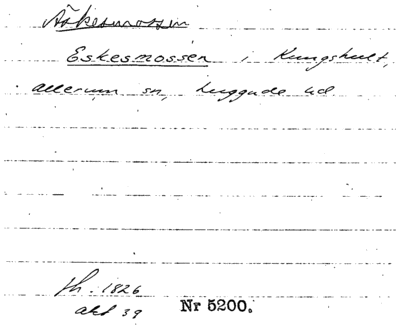 Äskesmossen
Eskesmossen i Kungshult,
Allerum sn, Luggude hd
h. 1826
akt 39 Nr 5200.